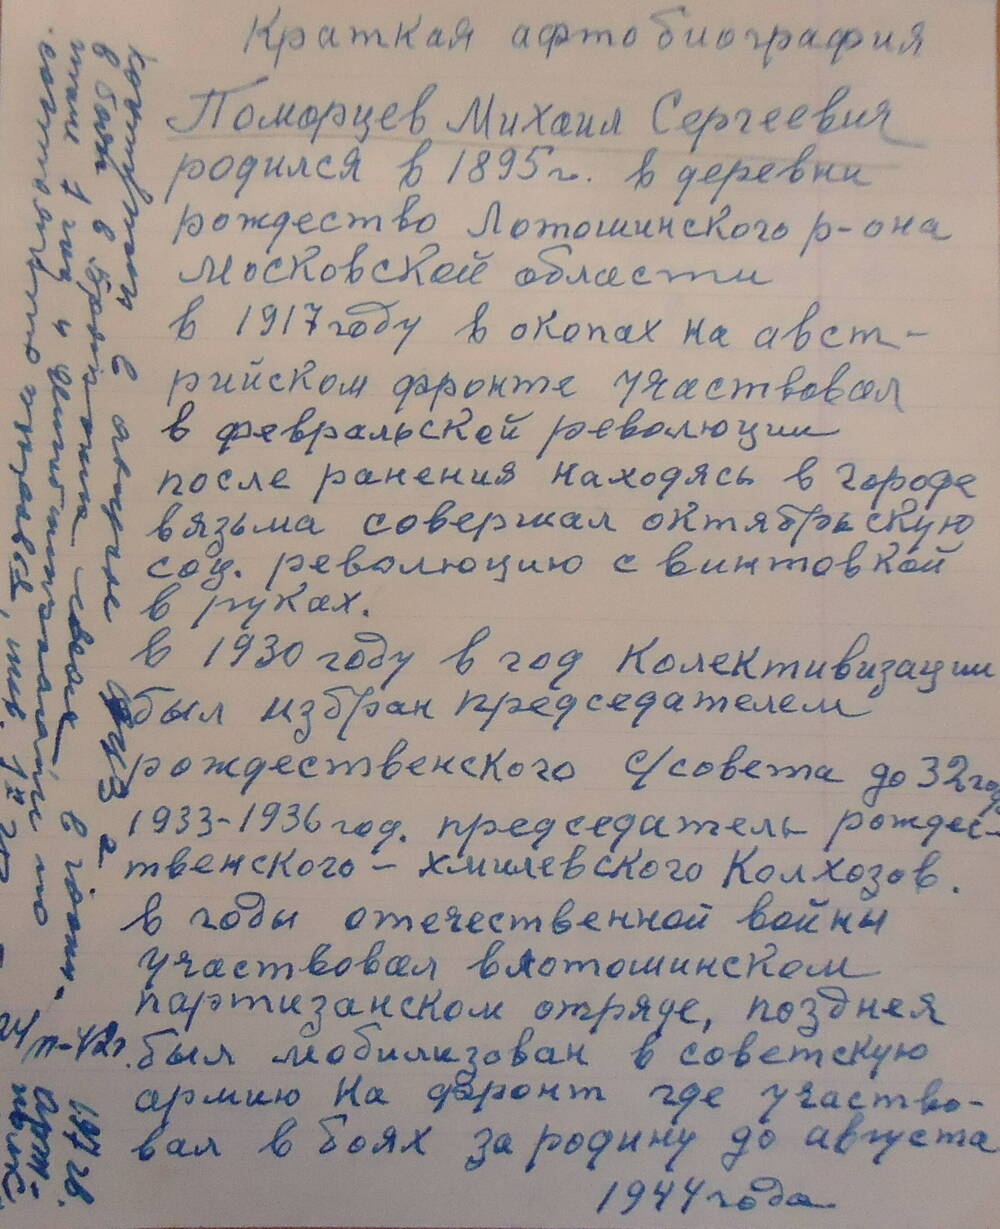 Краткая афтобиография
Поморцев Михаил Сергеевич
родился в 1895 г. в деревни
рождество Лотошинского р-она
Московской области
в 1917 году в окопах на авст-
рийском фронте участвовал
в февральской революции
после ранения находясь в городе
вязьма совершал октябрьскую
соц. революцию с винтовкой
в руках.
в 1930 году в год Колективизации
был избран председателем
рождественского с/совета до 32 год
1933-1936 год. председатель рождес-
твенского - хмилевского Колхозов.
в годы отечественной войны
участвовал влотошинском
партизанском отряде, позднея
был мобилизован в советскую
армию на фронт где участво-
вал в боях за родину до августа
1944 года
контузии в августе 1943 г
в боях в